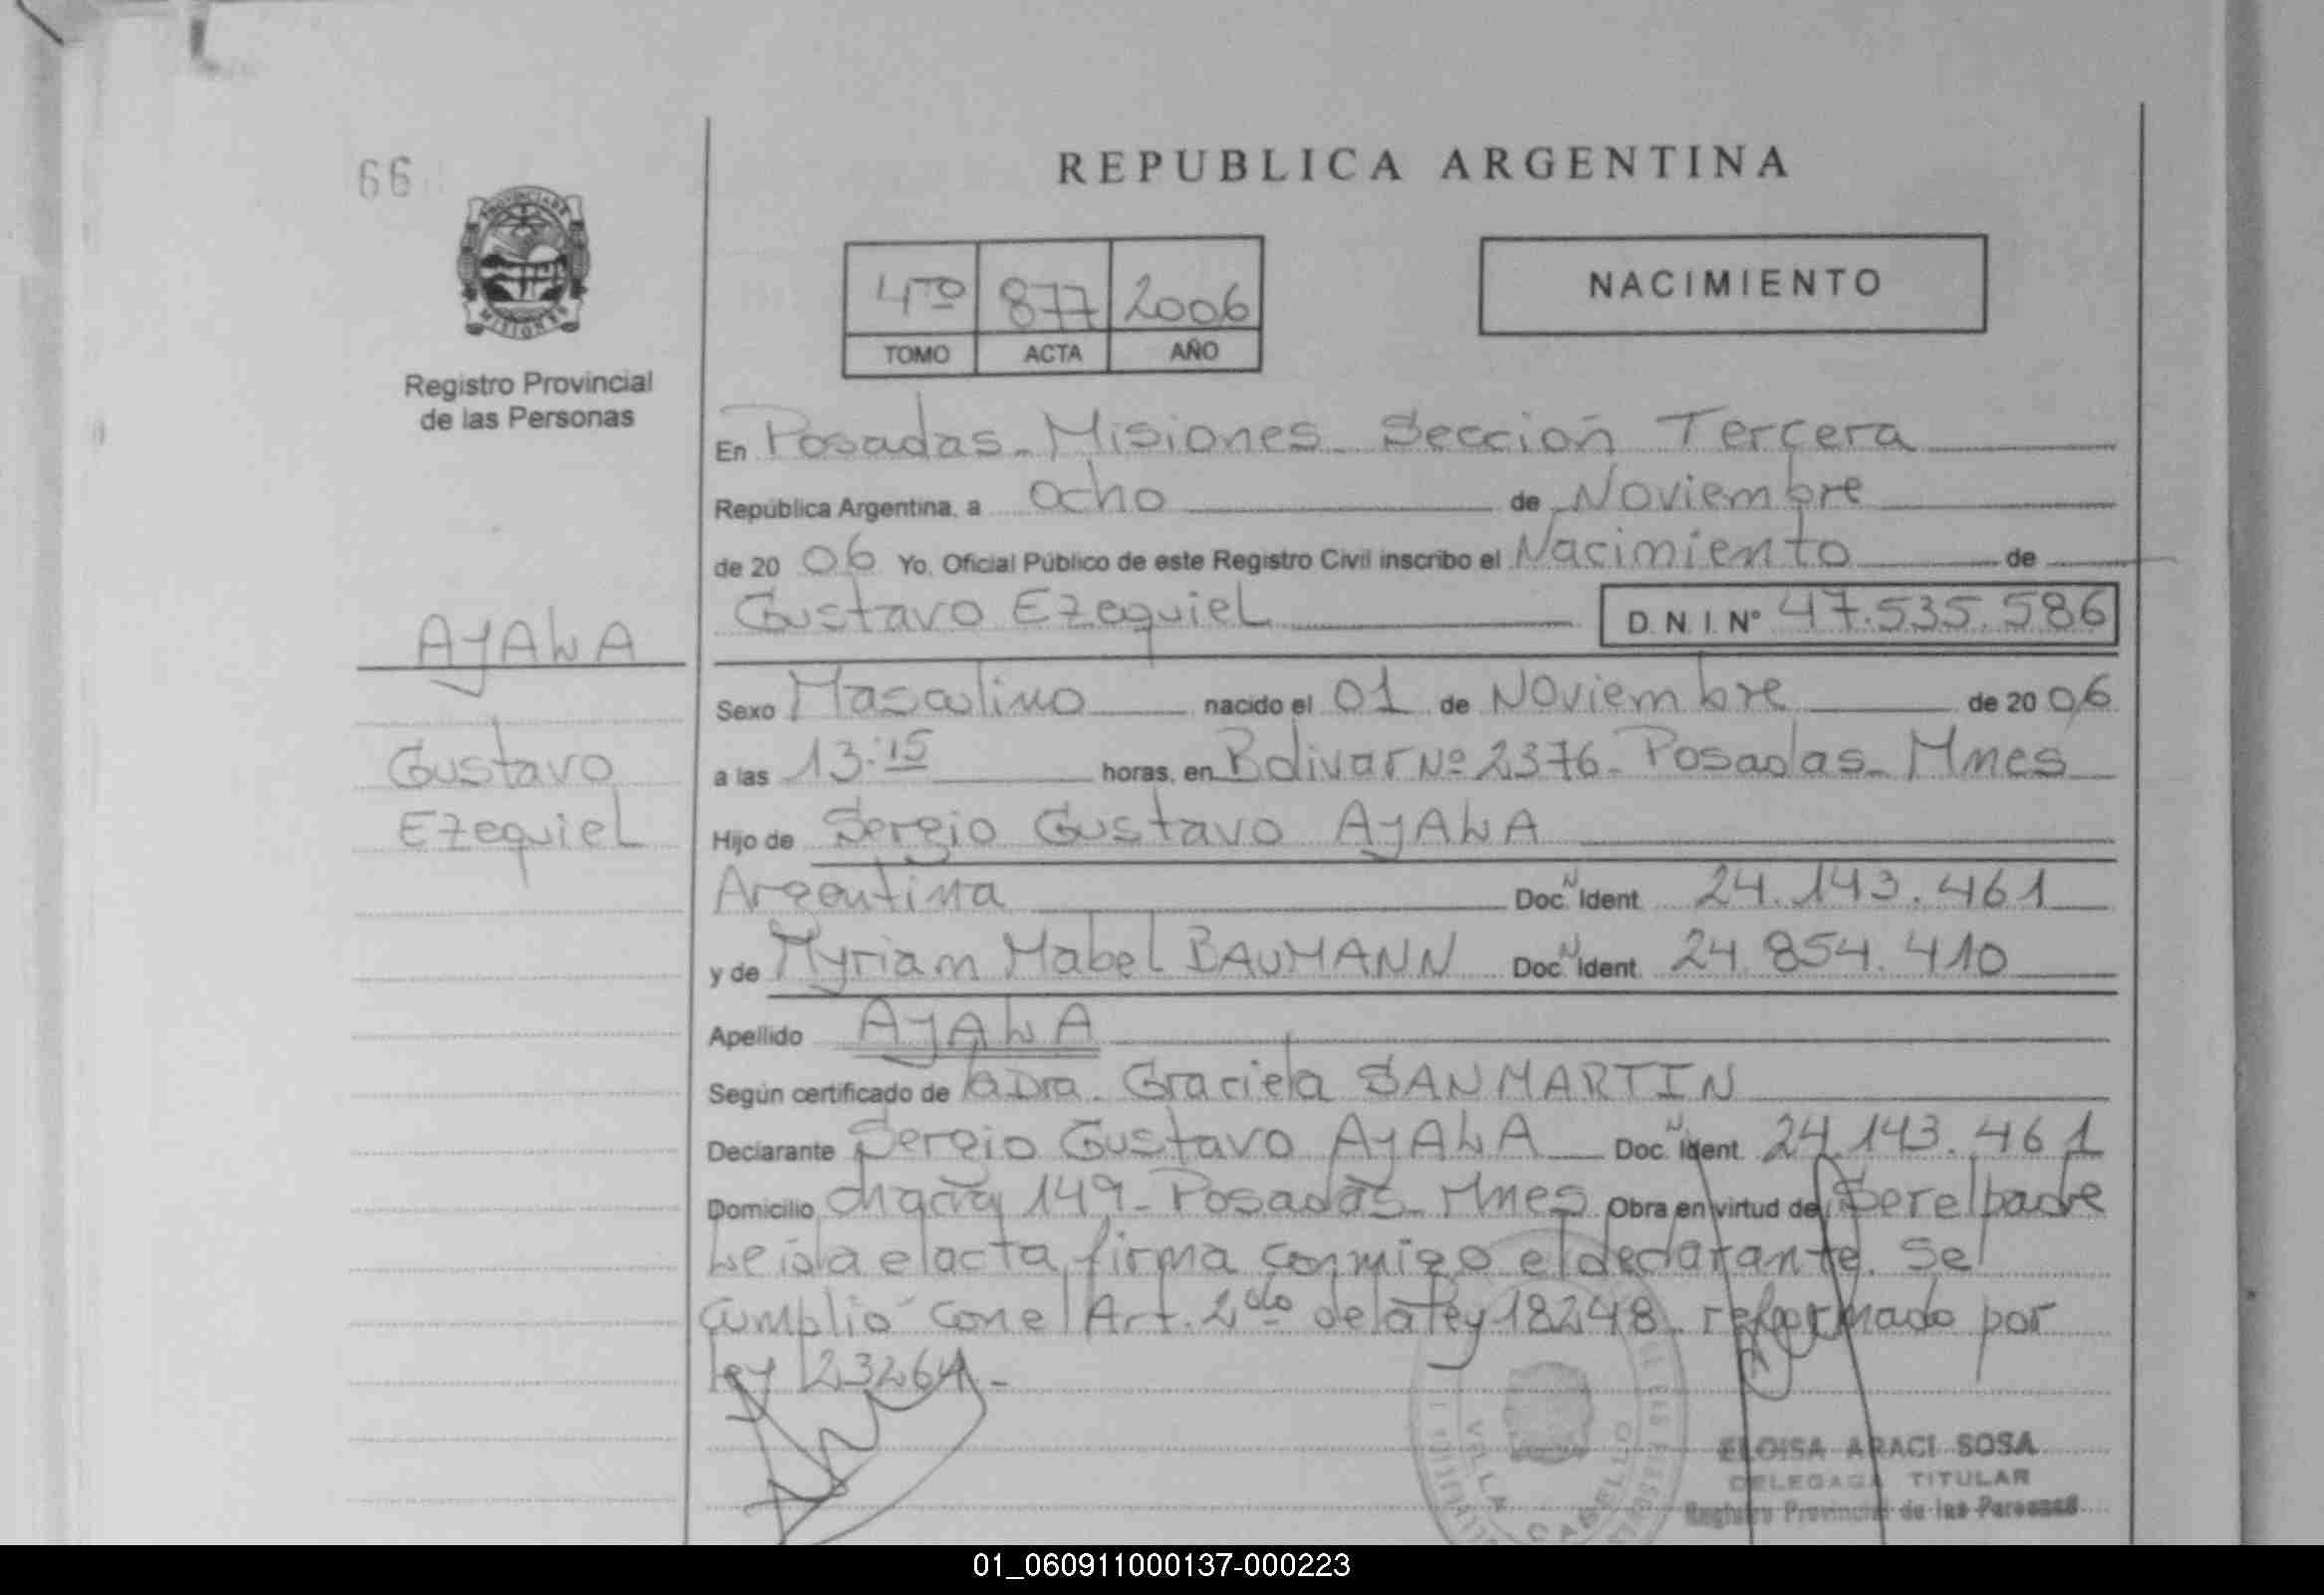 REPUBLICA ARGENTINA
66
PROVINCIA DE
MISIONES
Registro Provincial
de las Personas
4TO 877 2006
TOMO ACTA AÑO
NACIMIENTO
En Posadas - Misiones - Sección Tercera
República Argentina, a ocho de Noviembre
de 2006 Yo, Oficial Público de este Registro Civil inscribo el Nacimiento de
Gustavo Ezequiel D.N.I. Nº 47.535.586
AyALA
Sexo Masculino nacido el 01 de Noviembre de 2006
Gustavo
a las 13:15 horas, en Bolivar Nº 2376 - Posadas - Mnes
Ezequiel
Hijo de Sergio Gustavo AyALA
Argentina Doc. N Ident. 24.143.461
y de Myriam Mabel BAUMANN Doc. N Ident. 24.854.410
Apellido AyALA
Según certificado de la Dra. Graciela SANMARTIN
Declarante Sergio Gustavo AyALA Doc. N Ident. 24.143.461
Domicilio chacra 149 - Posadas - Mnes Obra en virtud de Ser el padre
Leida el acta, firma conmigo el declarante. Se
cumplio con el Art. 2do de la ley 18248 reformado por
ley 23264.-
VILLA CABELLO
ELOISA ARACI SOSA
DELEGADA TITULAR
Registro Provincial de las Personas
01_060911000137-000223